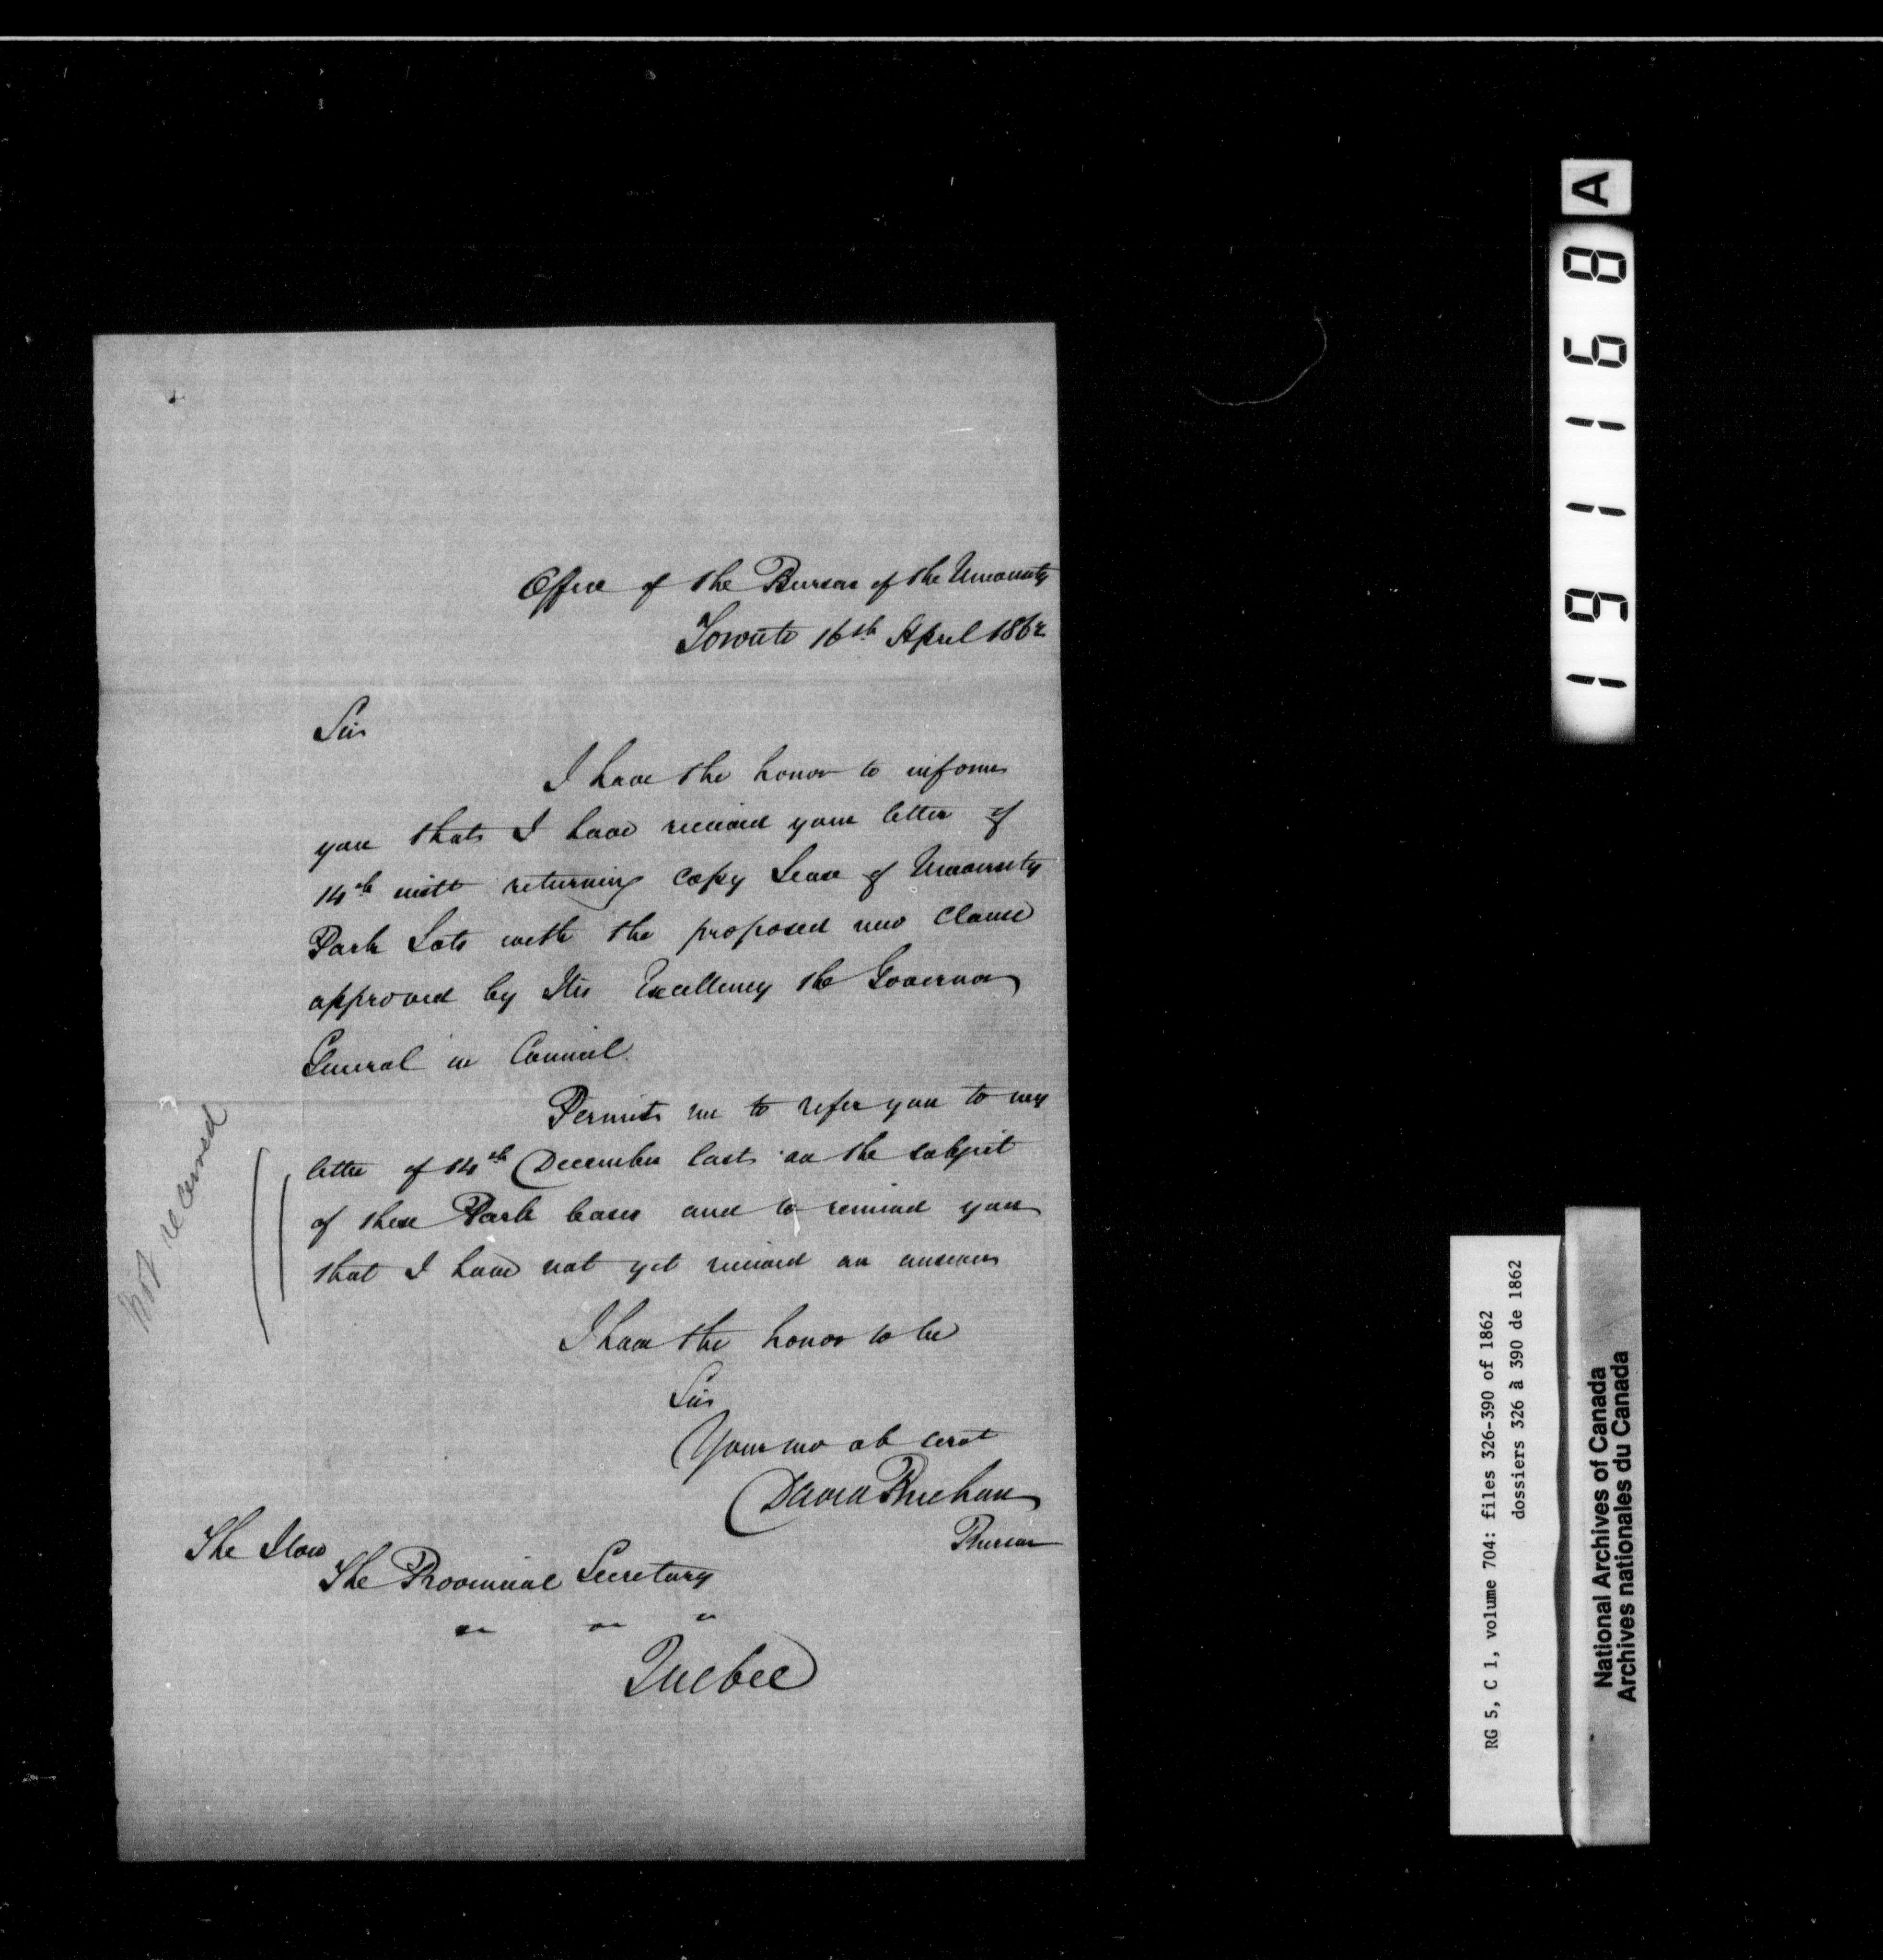 Office of the Bursar of the University
Toronto 16th April 1862
Sir
I have the honor to inform
you that I have received your letter of
14th inst returning copy Lease of University
Park Lots with the proposed new clause
approved by His Excellency the Governor
General in Council.
Permit me to refer you to my
letter of 14th December last on the subject
of these Park leases and to remind you
that I have not yet received an answer
not received
I have the honor to be
Sir
Your mo ob servt
David Buchan
Bursar
The Hon
The Provincial Secretary
" " "
Quebec
191168 A
RG 5, C 1, volume 704: files 326-390 of 1862
dossiers 326 à 390 de 1862
National Archives of Canada
Archives nationales du Canada